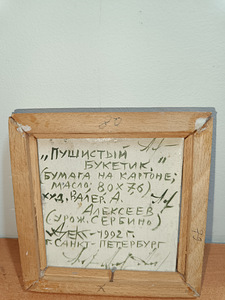 80
„Пушистый
букетик,"
(бумага на картоне;
масло; 80х76)
худ. Валер. А.
Алексеев
(урож. Сербино)
1992 г.
г. Санкт-Петербург